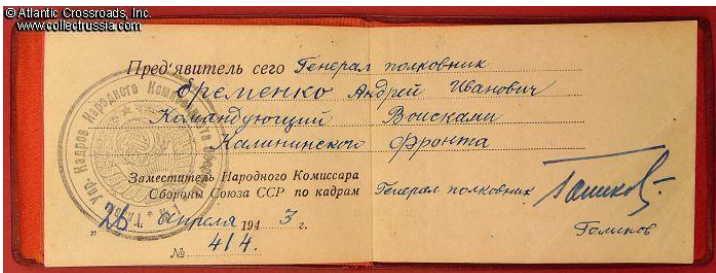 © Atlantic Crossroads, Inc.
www.collectrussia.com
Пред'явитель сего Генерал полковник
Еременко Андрей Иванович
Командующий Войсками
Калининского Фронта
Заместитель Народного Комиссара
Обороны Союза ССР по кадрам Генерал полковник
„26 апреля 1943 г. Голиков
№ 414.
Упр. Кадров Народного Комиссариата